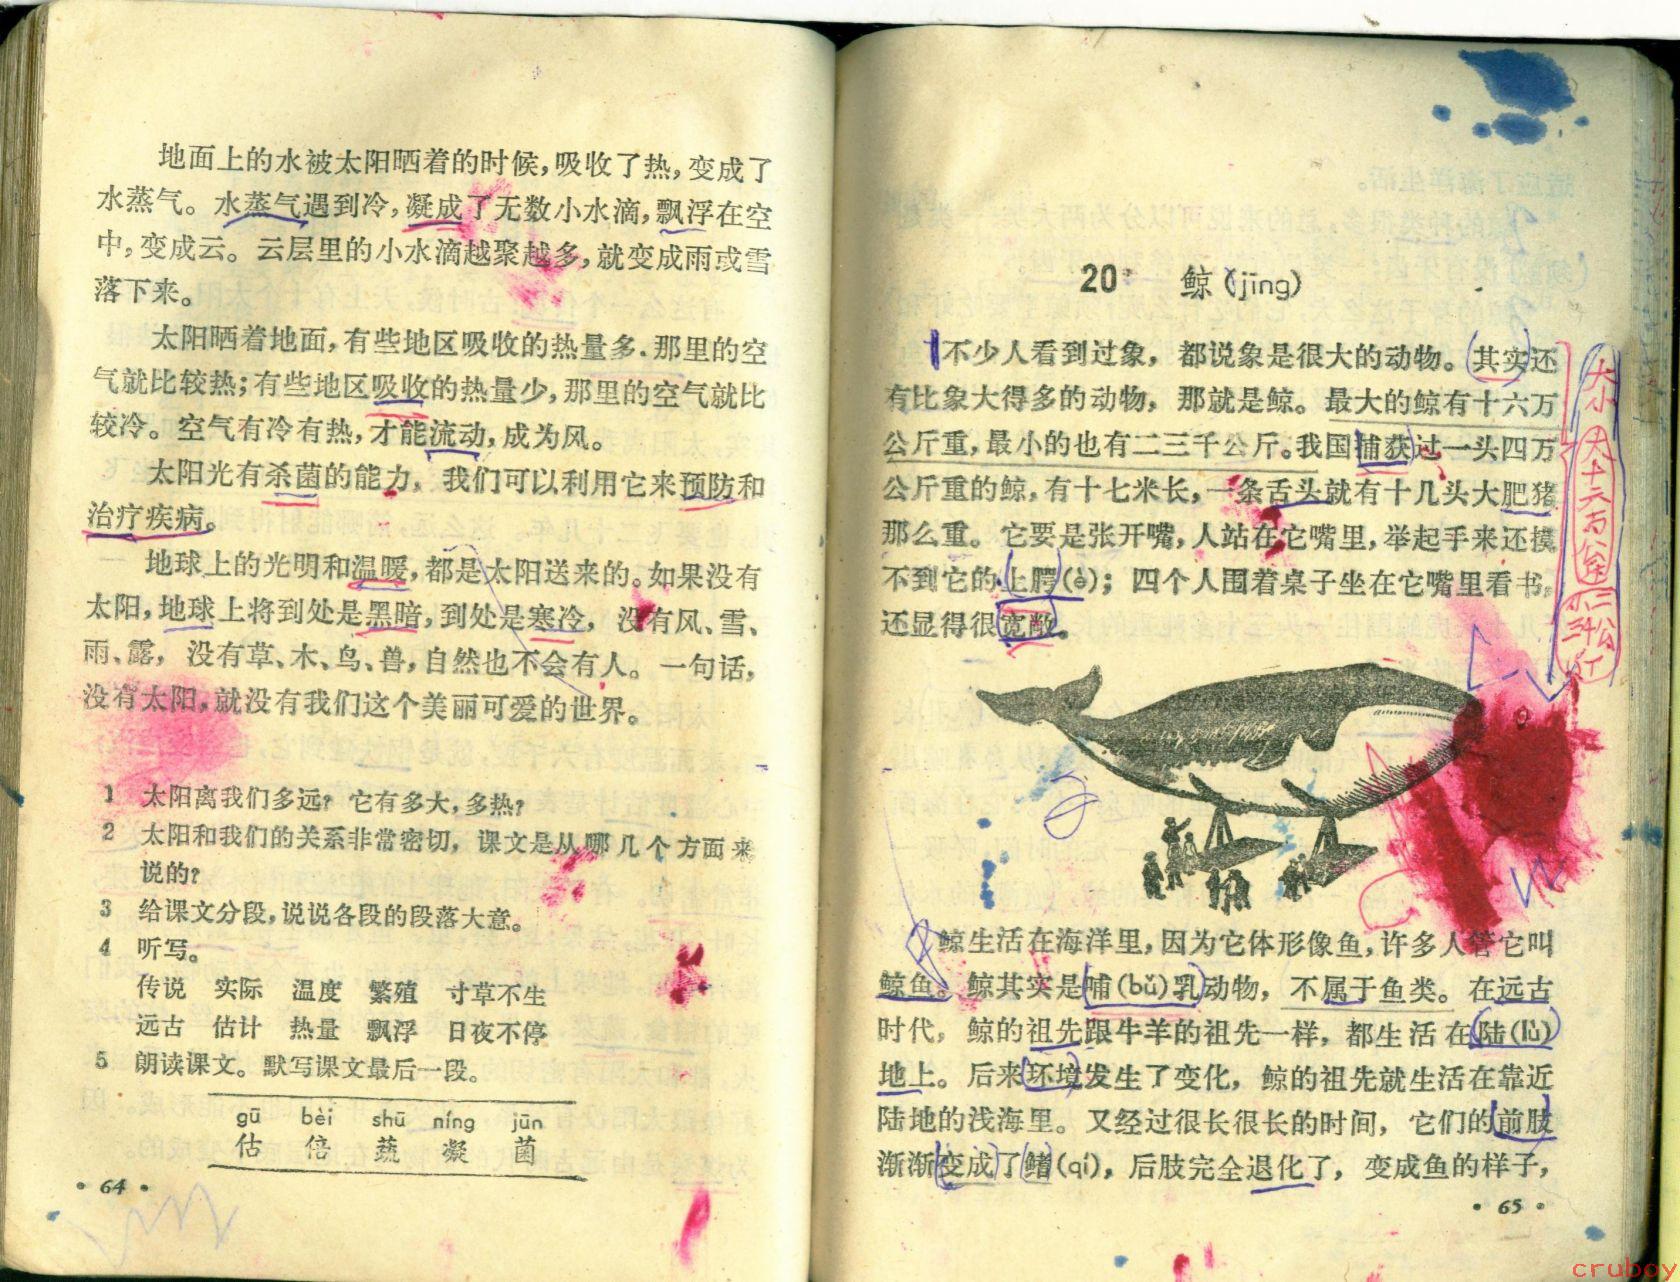 地面上的水被太阳晒着的时候，吸收了热，变成了
水蒸气。水蒸气遇到冷，凝成了无数小水滴，飘浮在空
中，变成云。云层里的小水滴越聚越多，就变成雨或雪
落下来。
太阳晒着地面，有些地区吸收的热量多，那里的空
气就比较热；有些地区吸收的热量少，那里的空气就比
较冷。空气有冷有热，才能流动，成为风。
太阳光有杀菌的能力，我们可以利用它来预防和
治疗疾病。
地球上的光明和温暖，都是太阳送来的。如果没有
太阳，地球上将到处是黑暗，到处是寒冷，没有风、雪、
雨、露，没有草、木、鸟、兽，自然也不会有人。一句话，
没有太阳，就没有我们这个美丽可爱的世界。
1 太阳离我们多远？它有多大，多热？
2 太阳和我们的关系非常密切，课文是从哪几个方面来
说的？
3 给课文分段，说说各段的段落大意。
4 听写。
传说 实际 温度 繁殖 寸草不生
远古 估计 热量 飘浮 日夜不停
5 朗读课文。默写课文最后一段。
gū bèi shū níng jūn
估 倍 蔬 凝 菌
·64·
20 鲸(jīng)
不少人看到过象，都说象是很大的动物。其实还
有比象大得多的动物，那就是鲸。最大的鲸有十六万
公斤重，最小的也有二三千公斤。我国捕获过一头四万
公斤重的鲸，有十七米长，一条舌头就有十几头大肥猪
那么重。它要是张开嘴，人站在它嘴里，举起手来还摸
不到它的上腭(è)；四个人围着桌子坐在它嘴里看书，
还显得很宽敞。
大小
大十六万公斤
小二三千公斤
鲸生活在海洋里，因为它体形像鱼，许多人管它叫
鲸鱼。鲸其实是哺(bǔ)乳动物，不属于鱼类。在远古
时代，鲸的祖先跟牛羊的祖先一样，都生活在陆(lù)
地上。后来环境发生了变化，鲸的祖先就生活在靠近
陆地的浅海里。又经过很长很长的时间，它们的前肢
渐渐变成了鳍(qí)，后肢完全退化了，变成鱼的样子，
·65·
cruboy